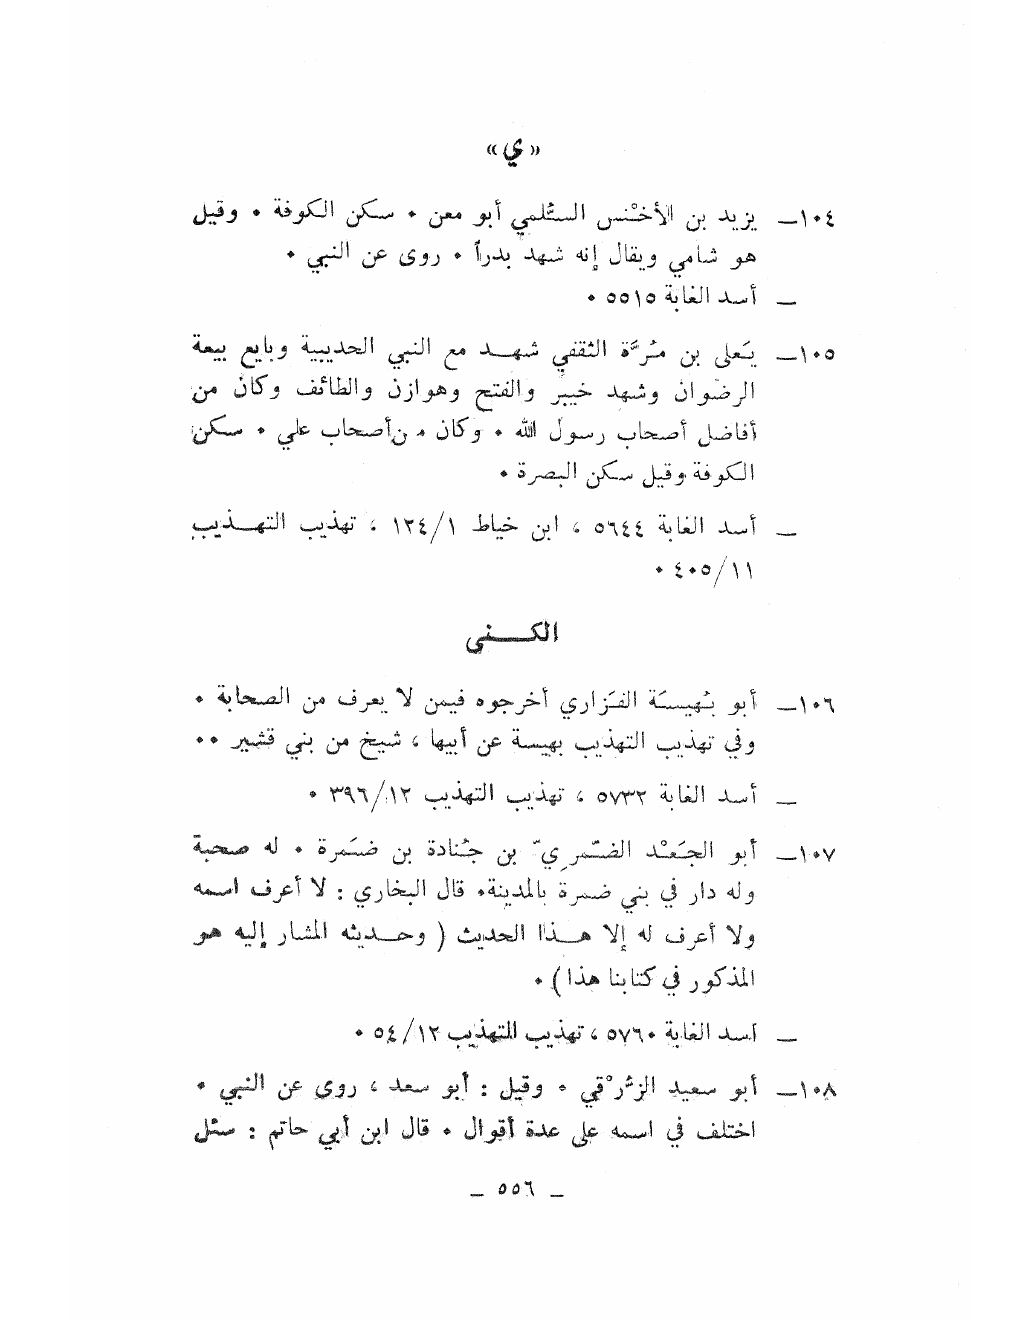 «ي»
١٠٤ــ يزيد بن الأخْنس السُّلمي أبو معن ٠ سكن الكوفة ٠ وقيل
هو شامي ويقال إنه شهد بدراً ٠ روى عن النبي ٠
ــ أسد الغابة ٥٥١٥ ٠
١٠٥ــ يَعلى بن مُرَّة الثقفي شهــد مع النبي الحديبية وبايع بيعة
الرضوان وشهد خيبر والفتح وهوازن والطائف وكان من
أفاضل أصحاب رسول الله ٠ وكان من أصحاب علي ٠ سكن
الكوفة وقيل سكن البصرة ٠
ــ أسد الغابة ٥٦٤٤ ، ابن خياط ١٢٤/١ ، تهذيب التهــذيب
٤٠٥/١١ ٠
الكــــنى
١٠٦ــ أبو بُهيسَة الفَزاري أخرجوه فيمن لا يعرف من الصحابة ٠
وفي تهذيب التهذيب بهيسة عن أبيها ، شيخ من بني قشير ٠٠
ــ أسد الغابة ٥٧٣٢ ، تهذيب التهذيب ٣٩٦/١٢ ٠
١٠٧ــ أبو الجَعْد الضَّمرِيّ بن جُنادة بن ضَمرة ٠ له صحبة
وله دار في بني ضمرة بالمدينة٠ قال البخاري : لا أعرف اسمه
ولا أعرف له إلا هــذا الحديث ( وحــديثه المشار إليه هو
المذكور في كتابنا هذا ) ٠
ــ أسد الغابة ٥٧٦٠ ، تهذيب التهذيب ٥٤/١٢ ٠
١٠٨ــ أبو سعيد الزُّرْقي ٠ وقيل : أبو سعد ، روى عن النبي ٠
اختلف في اسمه على عدة أقوال ٠ قال ابن أبي حاتم : سئل
ــ ٥٥٦ ــ